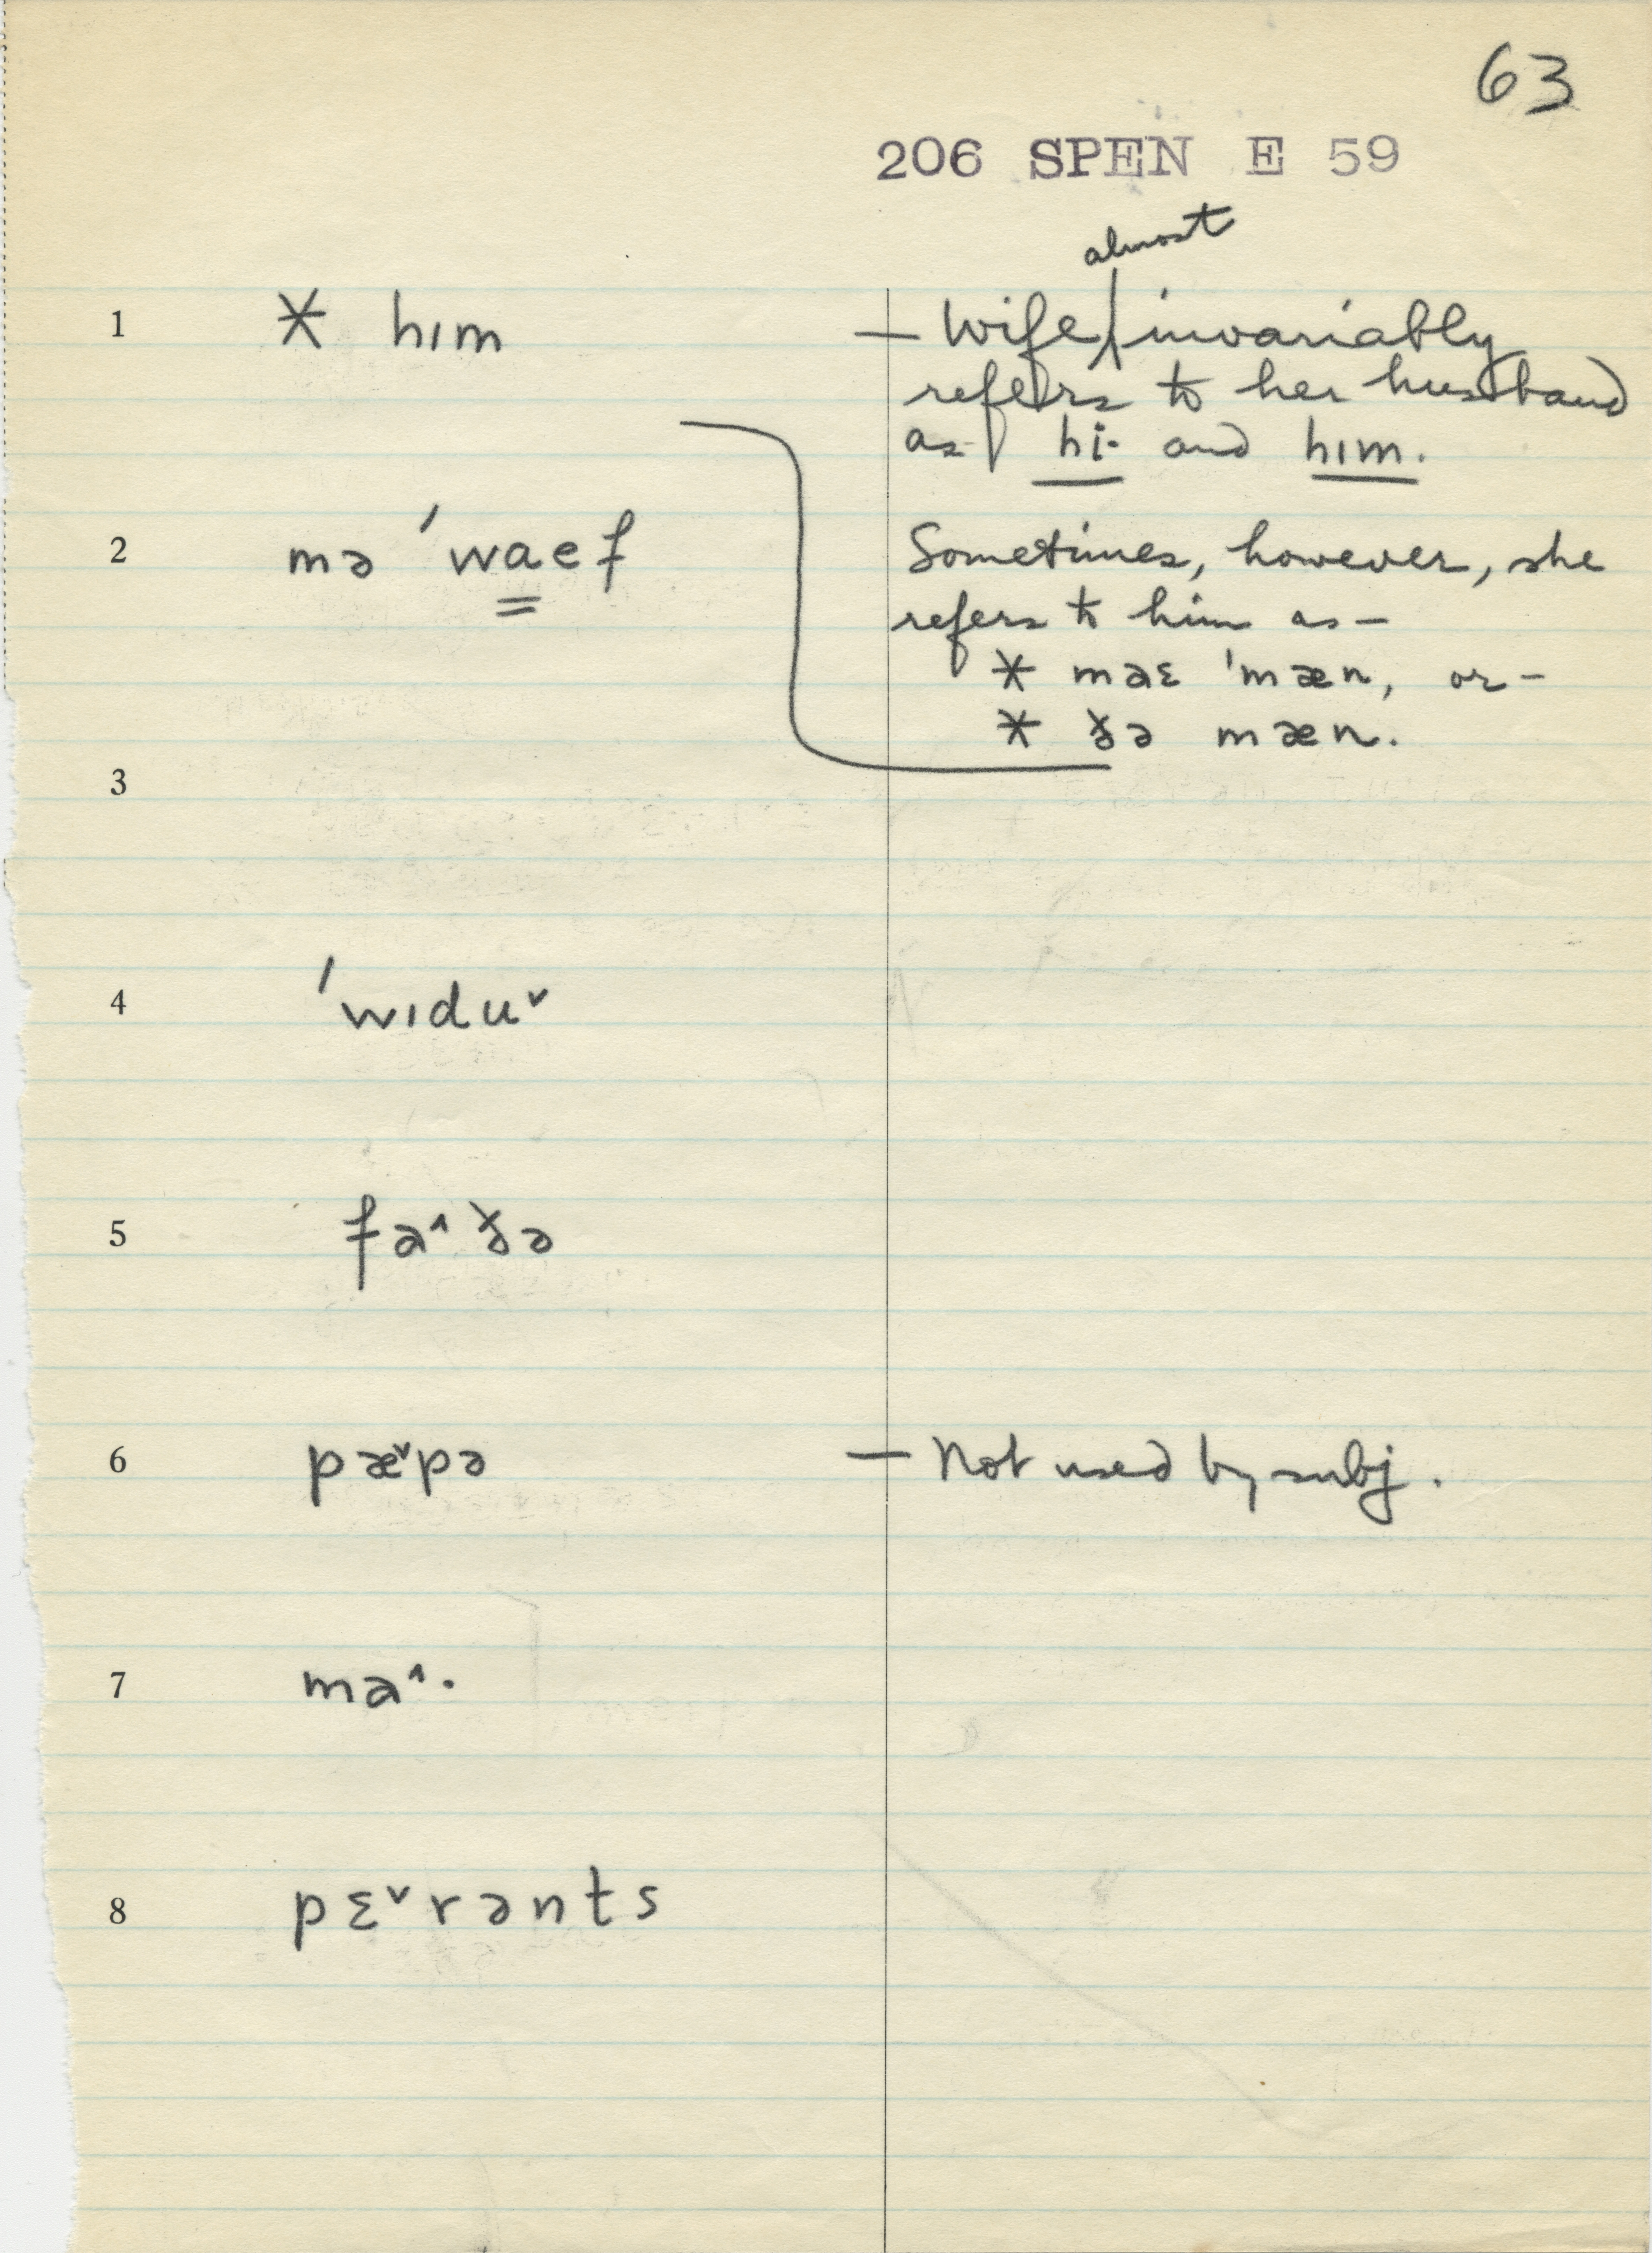 63
206 SPEN E 59
almost
1 * hɪm — Wife invariably
refers to her husband
as hi· and hɪm.
2 mə 'waef Sometimes, however, she
refers to him as —
* maɛ 'mæn, or —
* ðə mæn.
3
4 'wɪduˇ
5 fa^ðə
6 pæˇpə — Not used by subj.
7 ma^·
8 pɛˇrənts